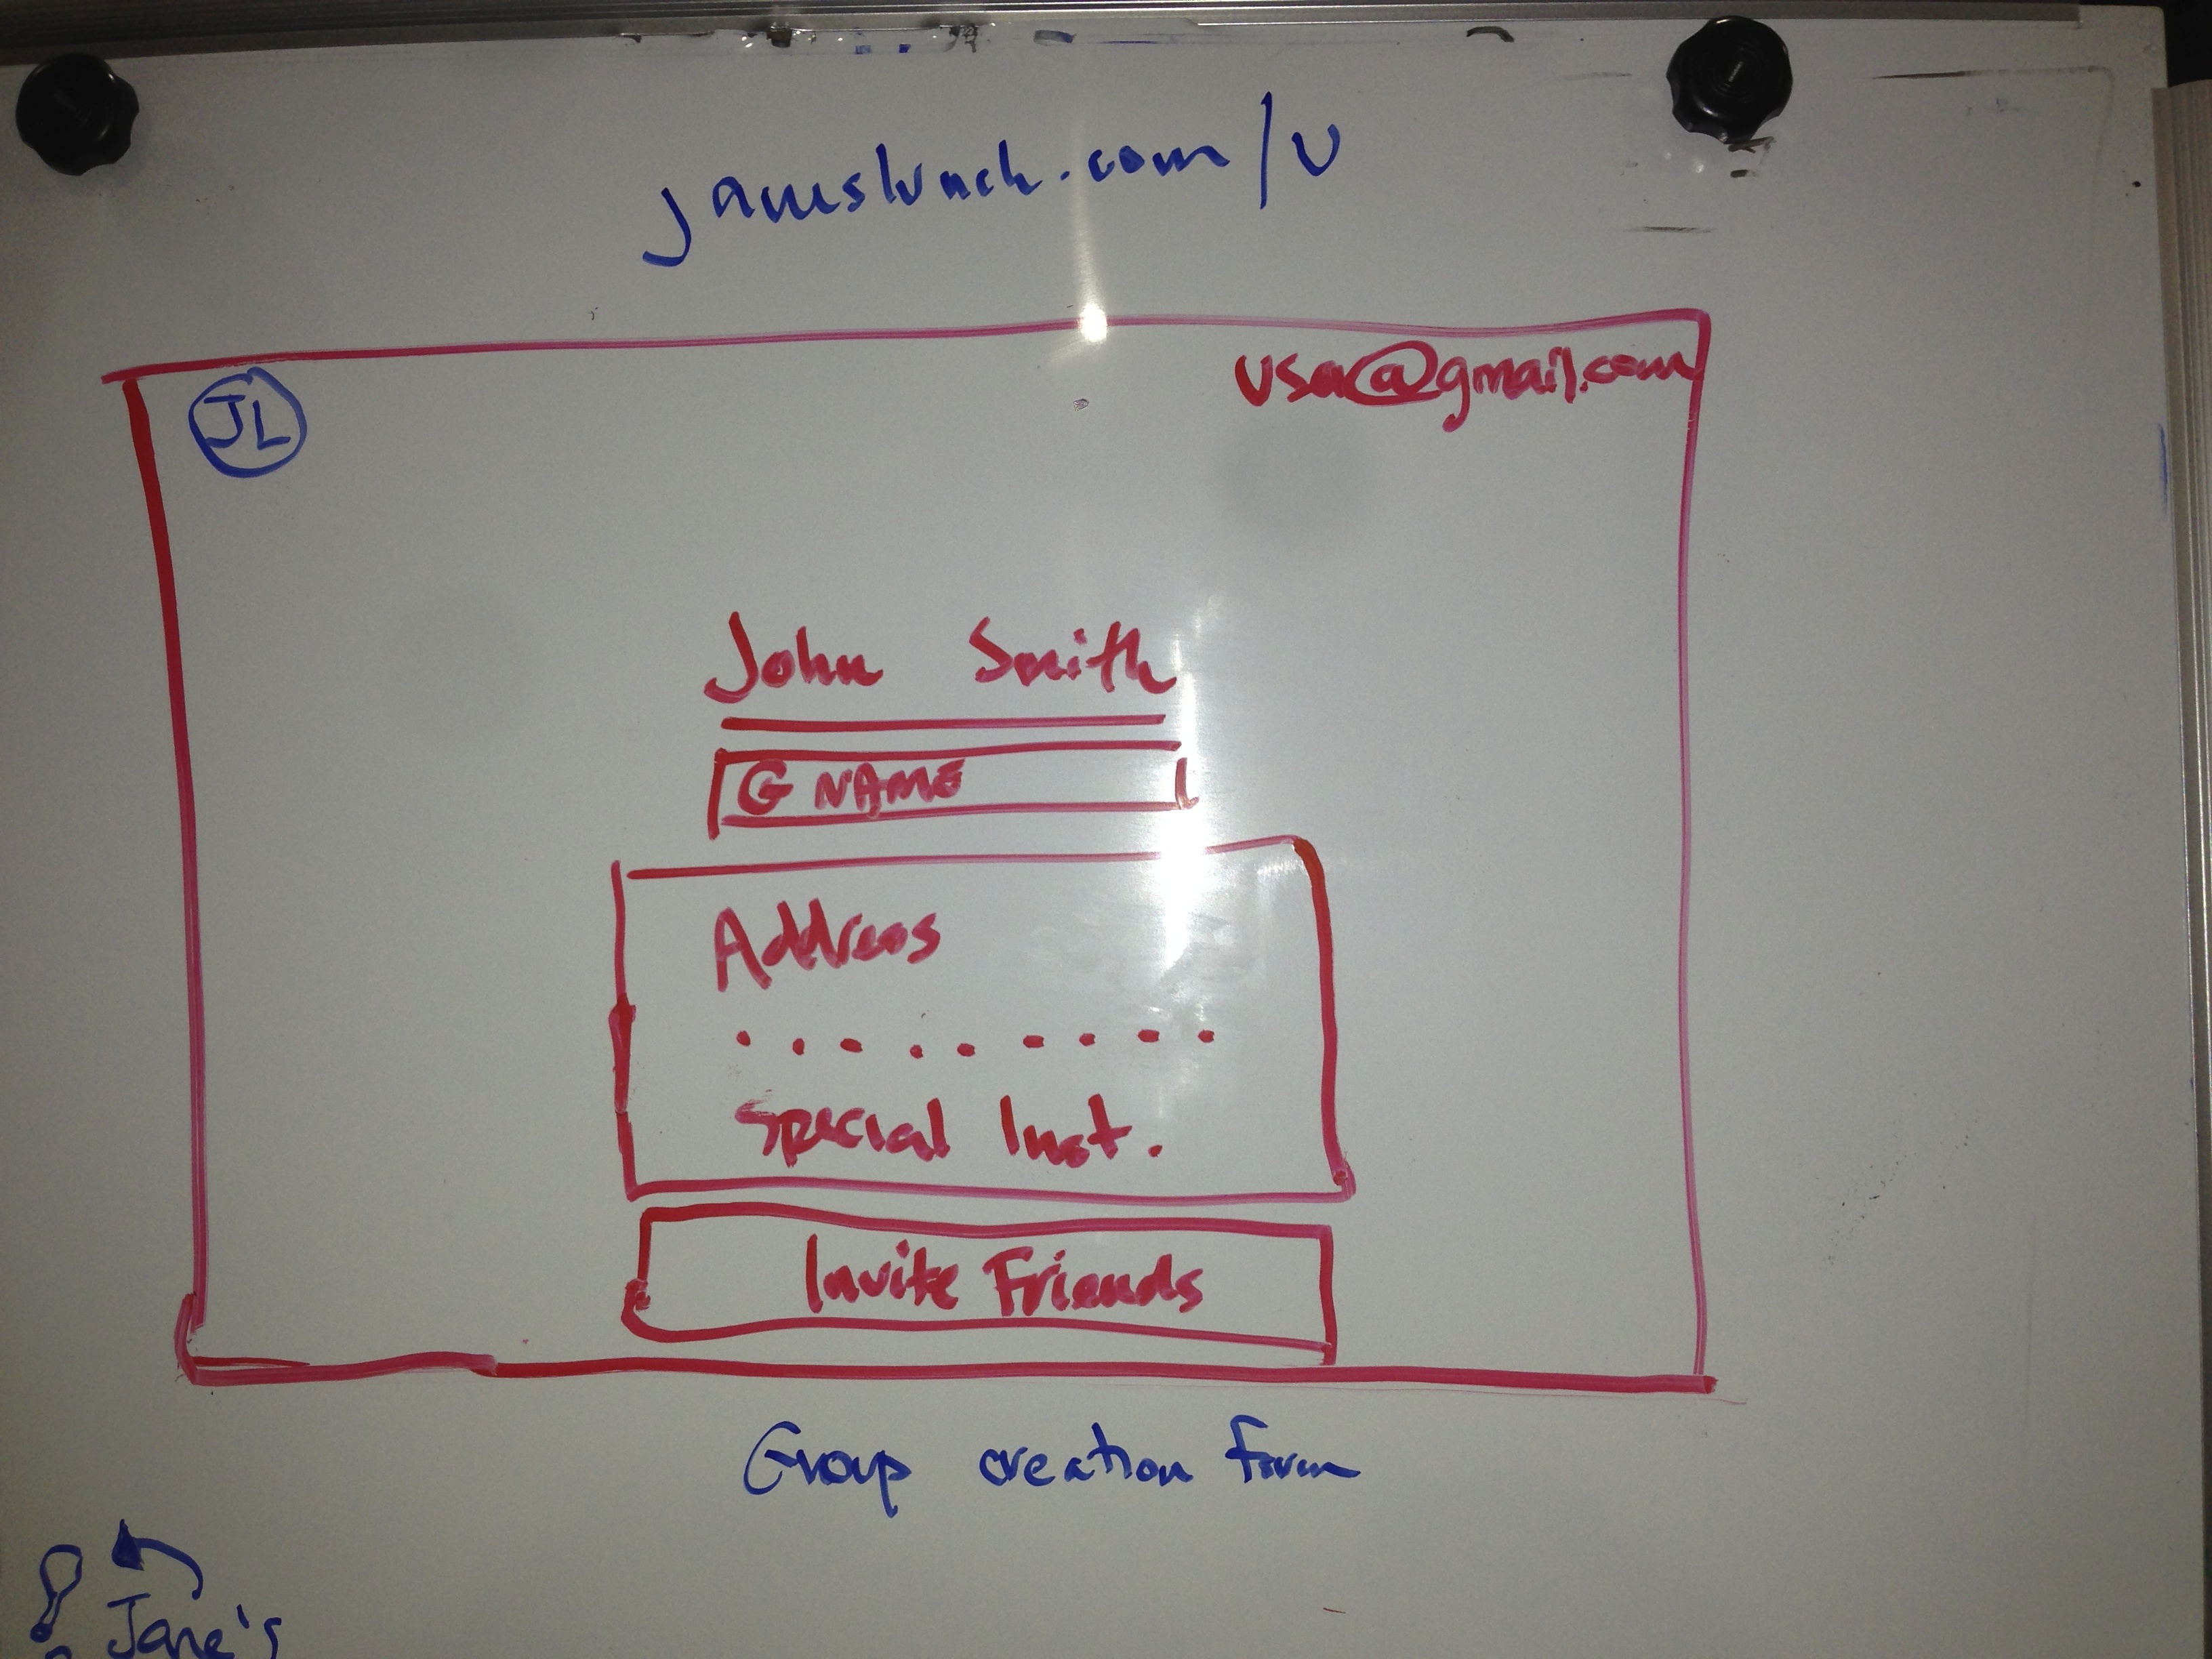 janeslunch.com/U
JL
user@gmail.com
John Smith
G NAME
Address
Special Inst.
Invite Friends
Group creation form
Jane's